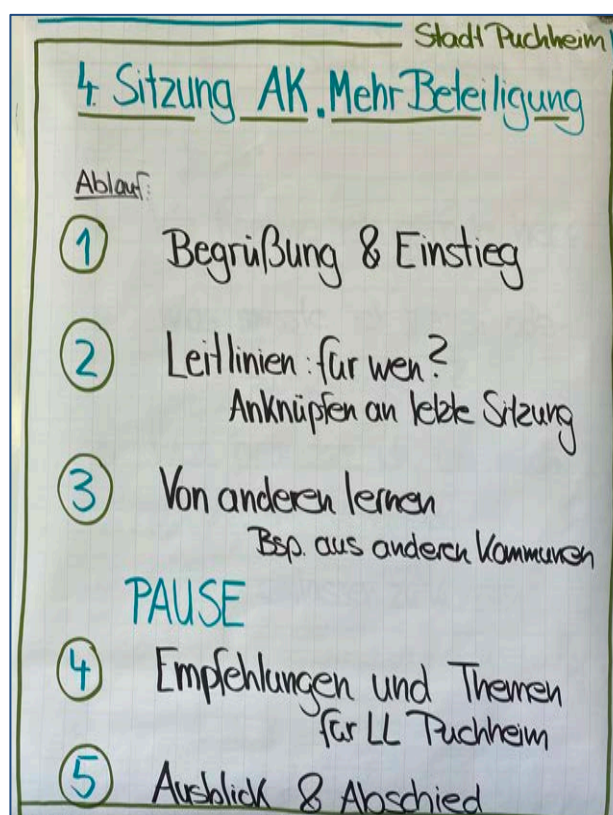 Stadt Puchheim
4. Sitzung AK. Mehr Beteiligung
Ablauf:
1 Begrüßung & Einstieg
2 Leitlinien: für wen?
Anknüpfen an letzte Sitzung
3 Von anderen lernen
Bsp. aus anderen Kommunen
PAUSE
4 Empfehlungen und Themen
für LL Puchheim
5 Ausblick & Abschied